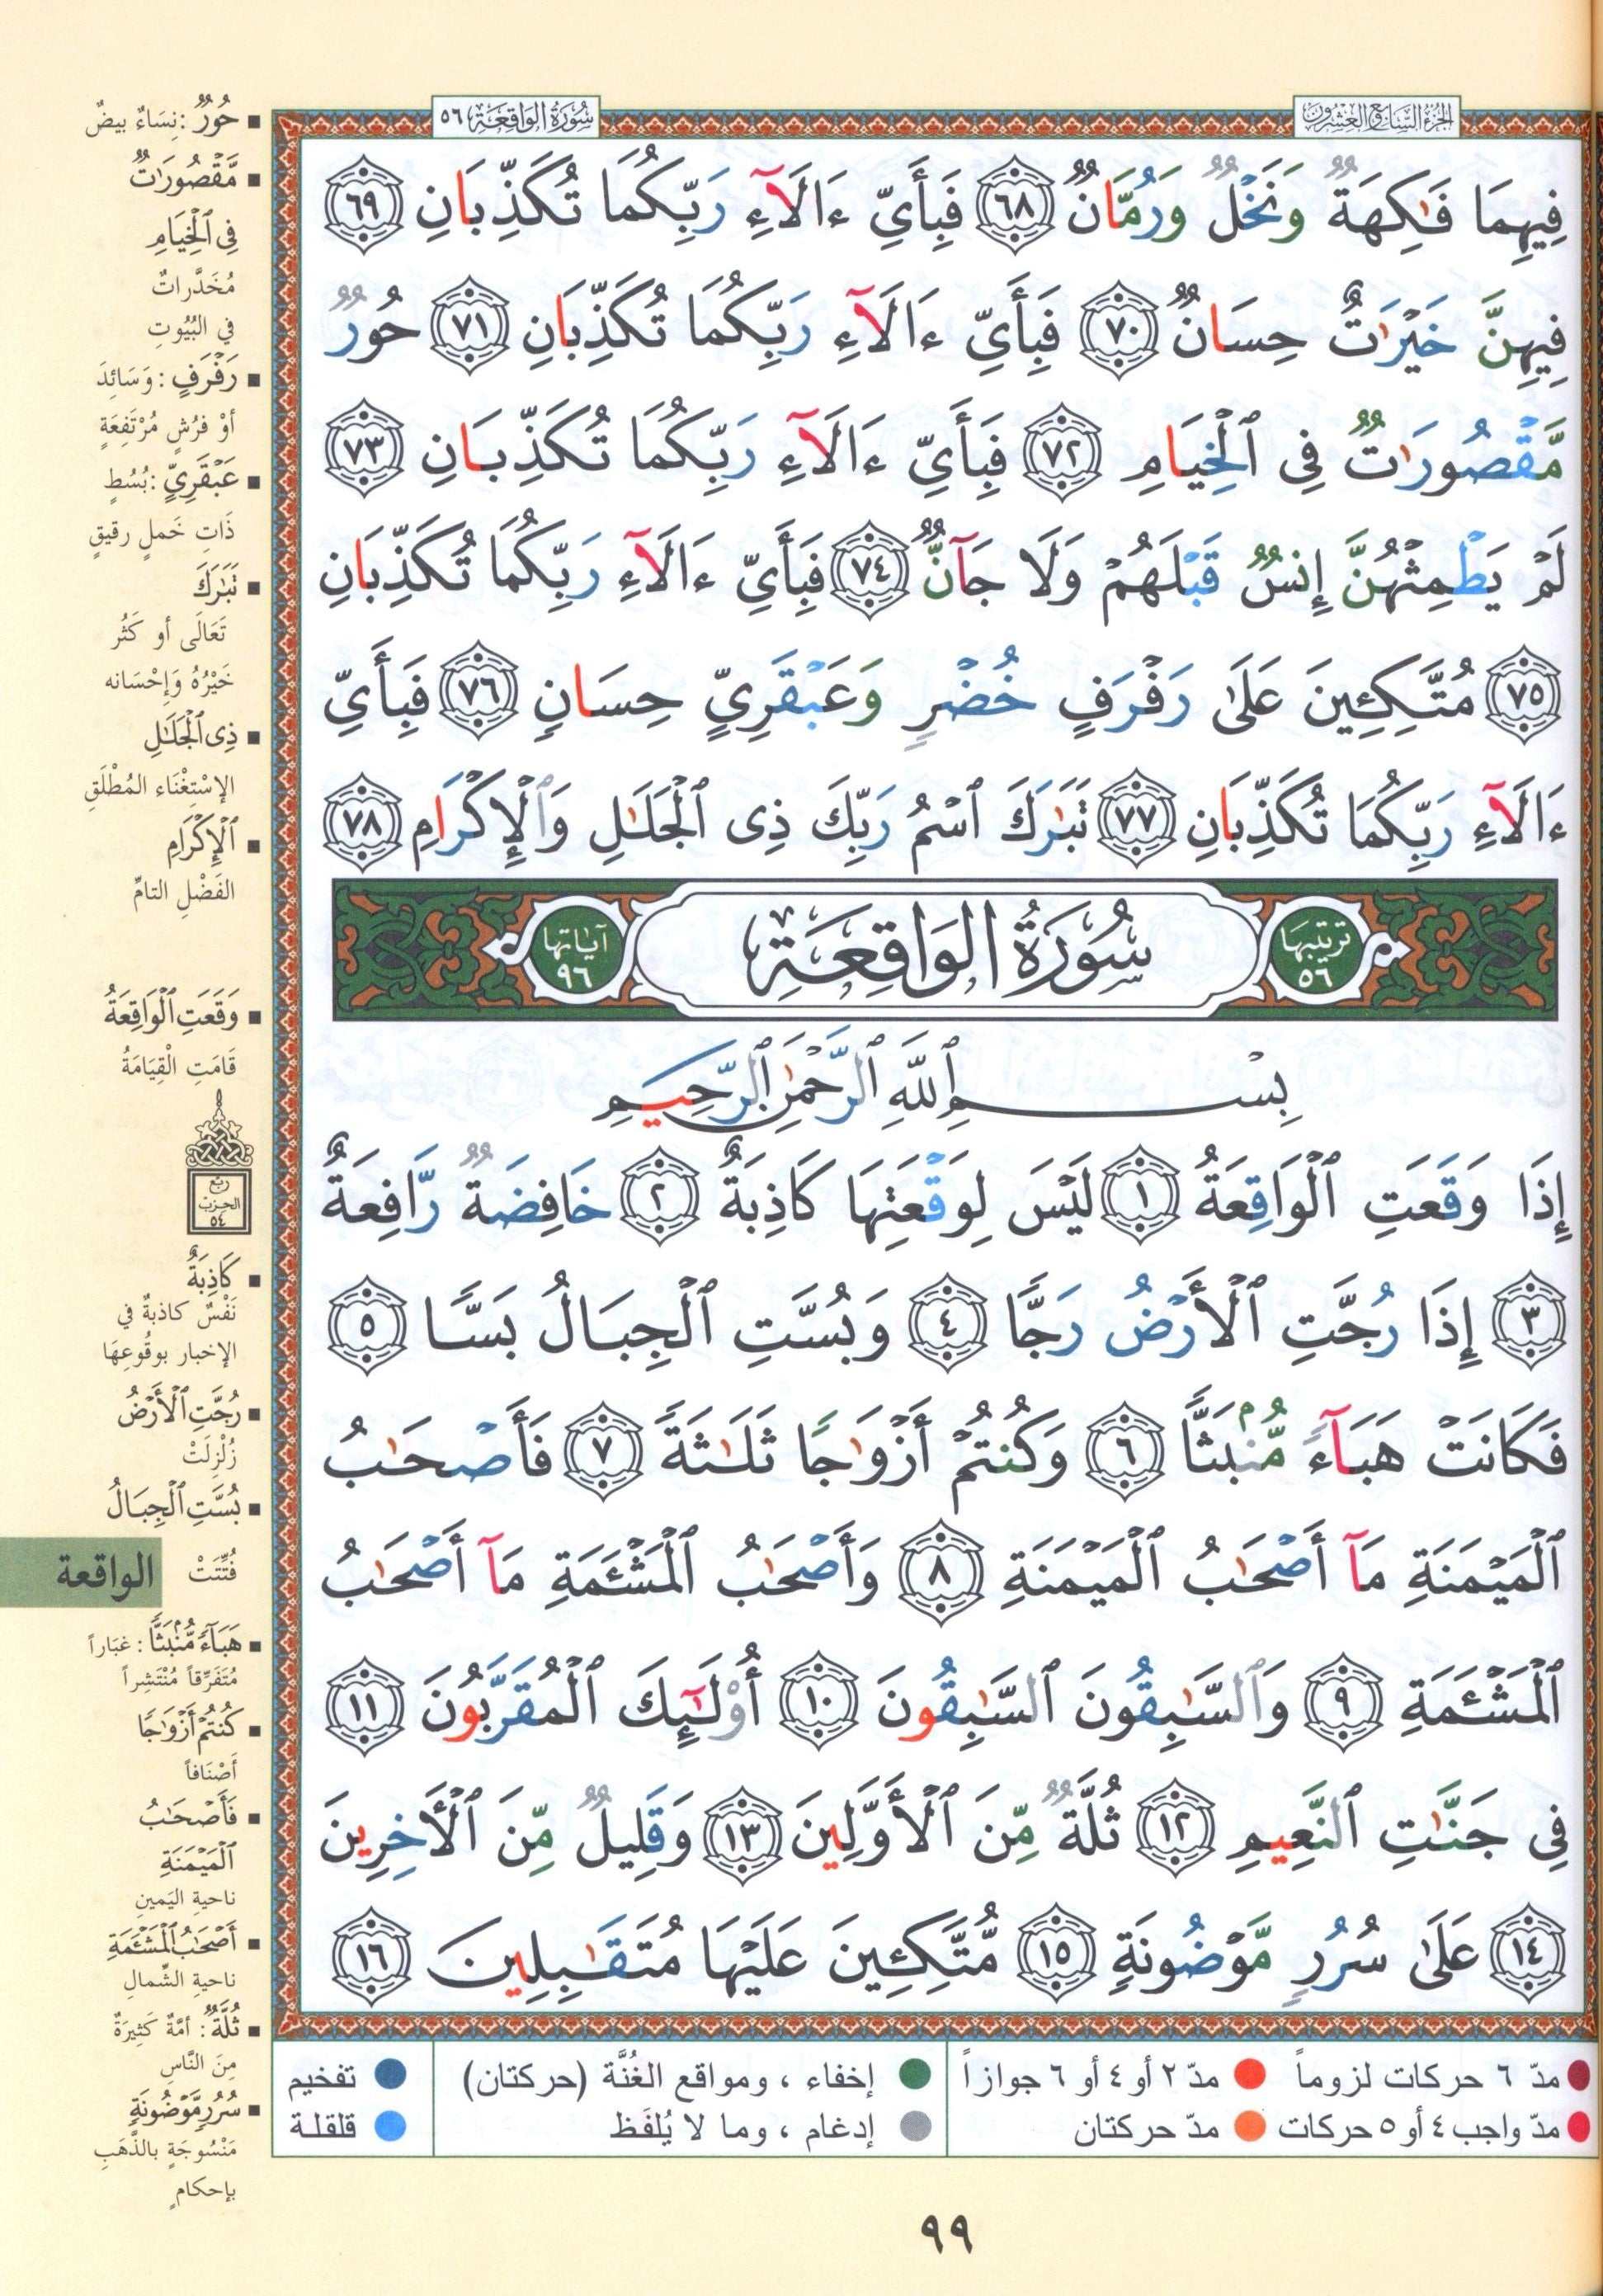 الجزء السابع والعشرون
سورة الواقعة ٥٦
فِيهِمَا فَٰكِهَةٌ وَنَخْلٌ وَرُمَّانٌ ٦٨ فَبِأَيِّ ءَالَآءِ رَبِّكُمَا تُكَذِّبَانِ ٦٩
فِيهِنَّ خَيْرَٰتٌ حِسَانٌ ٧٠ فَبِأَيِّ ءَالَآءِ رَبِّكُمَا تُكَذِّبَانِ ٧١ حُورٌ
مَّقْصُورَٰتٌ فِى ٱلْخِيَامِ ٧٢ فَبِأَيِّ ءَالَآءِ رَبِّكُمَا تُكَذِّبَانِ ٧٣
لَمْ يَطْمِثْهُنَّ إِنسٌ قَبْلَهُمْ وَلَا جَآنٌّ ٧٤ فَبِأَيِّ ءَالَآءِ رَبِّكُمَا تُكَذِّبَانِ
٧٥ مُتَّكِـِٔينَ عَلَىٰ رَفْرَفٍ خُضْرٍ وَعَبْقَرِيٍّ حِسَانٍ ٧٦ فَبِأَيِّ
ءَالَآءِ رَبِّكُمَا تُكَذِّبَانِ ٧٧ تَبَٰرَكَ ٱسْمُ رَبِّكَ ذِى ٱلْجَلَٰلِ وَٱلْإِكْرَامِ ٧٨
ترتيبها ٥٦
سُورَةُ الوَاقِعَةِ
آياتها ٩٦
بِسْمِ ٱللَّهِ ٱلرَّحْمَٰنِ ٱلرَّحِيمِ
إِذَا وَقَعَتِ ٱلْوَاقِعَةُ ١ لَيْسَ لِوَقْعَتِهَا كَاذِبَةٌ ٢ خَافِضَةٌ رَّافِعَةٌ
٣ إِذَا رُجَّتِ ٱلْأَرْضُ رَجًّا ٤ وَبُسَّتِ ٱلْجِبَالُ بَسًّا ٥
فَكَانَتْ هَبَآءً مُّنۢبَثًّا ٦ وَكُنتُمْ أَزْوَٰجًا ثَلَٰثَةً ٧ فَأَصْحَٰبُ
ٱلْمَيْمَنَةِ مَآ أَصْحَٰبُ ٱلْمَيْمَنَةِ ٨ وَأَصْحَٰبُ ٱلْمَشْـَٔمَةِ مَآ أَصْحَٰبُ
ٱلْمَشْـَٔمَةِ ٩ وَٱلسَّٰبِقُونَ ٱلسَّٰبِقُونَ ١٠ أُو۟لَٰٓئِكَ ٱلْمُقَرَّبُونَ ١١
فِى جَنَّٰتِ ٱلنَّعِيمِ ١٢ ثُلَّةٌ مِّنَ ٱلْأَوَّلِينَ ١٣ وَقَلِيلٌ مِّنَ ٱلْءَاخِرِينَ
١٤ عَلَىٰ سُرُرٍ مَّوْضُونَةٍ ١٥ مُّتَّكِـِٔينَ عَلَيْهَا مُتَقَٰبِلِينَ ١٦
▪ حُورٌ : نِسَاءٌ بيضٌ
▪ مَّقْصُورَٰتٌ
فِى ٱلْخِيَامِ
مُخَدَّراتٌ
في البُيُوتِ
▪ رَفْرَفٍ : وَسَائِدَ
أوْ فرُشٍ مُرْتَفِعَةٍ
▪ عَبْقَرِيٍّ : بُسُطٍ
ذَاتِ خَملٍ رقيقٍ
▪ تَبَٰرَكَ
تَعَالَى أو كَثُر
خَيْرُهُ وَإِحْسَانه
▪ ذِى ٱلْجَلَٰلِ
الإسْتِغْنَاء المُطْلَقِ
▪ ٱلْإِكْرَامِ
الفَضْلِ التامِّ
▪ وَقَعَتِ ٱلْوَاقِعَةُ
قَامَتِ الْقِيَامَةُ
ربع
الحزب
٥٤
▪ كَاذِبَةٌ
نَفْسٌ كاذبةٌ في
الإخبار بوقُوعِهَا
▪ رُجَّتِ ٱلْأَرْضُ
زُلْزِلَتْ
▪ بُسَّتِ ٱلْجِبَالُ
فُتِّتَتْ
الواقعة
▪ هَبَآءً مُّنۢبَثًّا : غبَاراً
مُتَفَرِّقاً مُنْتَشِراً
▪ كُنتُمْ أَزْوَٰجًا
أَصْنَافاً
▪ فَأَصْحَٰبُ
ٱلْمَيْمَنَةِ
ناحيةِ اليَمينِ
▪ أَصْحَٰبُ ٱلْمَشْـَٔمَةِ
ناحيةِ الشِّمالِ
▪ ثُلَّةٌ : أمَّةٌ كَثِيرَةٌ
مِنَ النَّاسِ
▪ سُرُرٍ مَّوْضُونَةٍ
مَنْسُوجَةٍ بالذَّهَبِ
بإحكامٍ
مدّ ٦ حركات لزوماً ● مدّ ٢ أو ٤ أو ٦ جوازاً
مدّ واجب ٤ أو ٥ حركات ● مدّ حركتان
إخفاء ، ومواقع الغُنَّة (حركتان)
إدغام ، وما لا يُلفَظ
تفخيم
قلقلة
٩٩